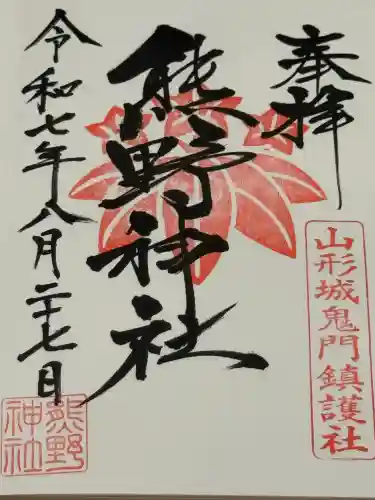 奉拝
山形城鬼門鎮護社
熊野神社
令和七年八月二十七日
熊野
神社